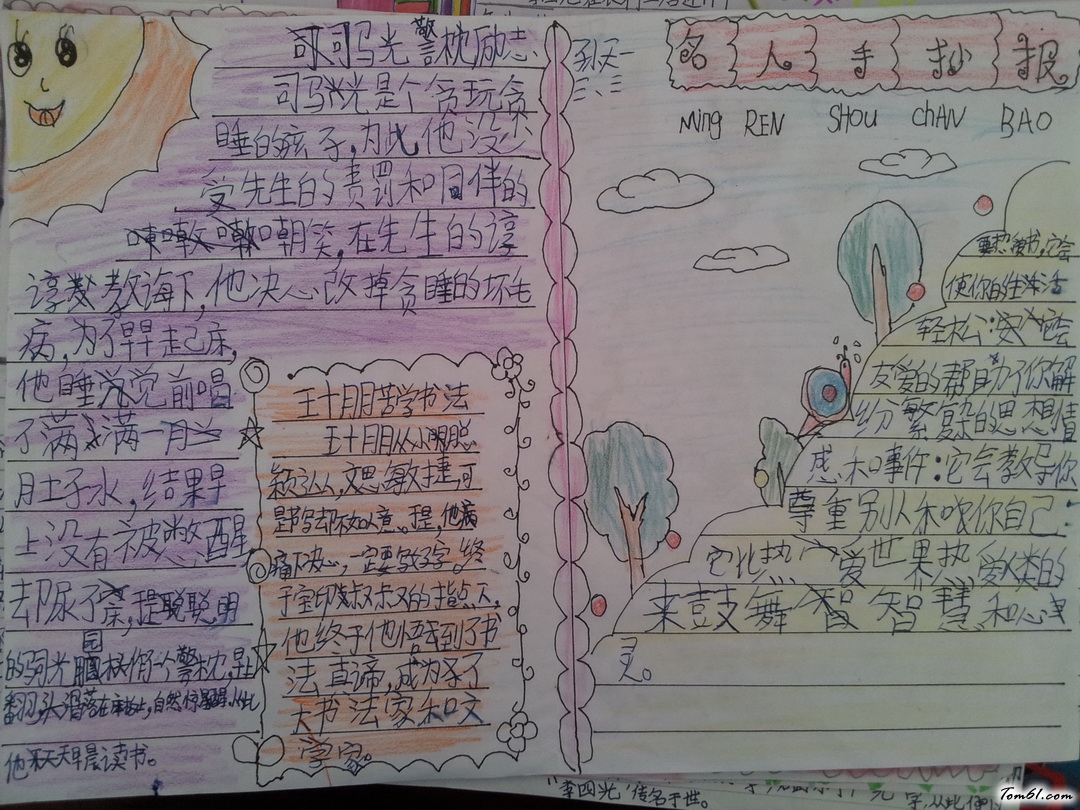 名人手抄报
Ming REN SHOU chAN BAO
司马光警枕励志
司马光是个贪玩贪
睡的孩子,为此他没少
受先生的责罚和同伴的
嘲笑,在先生的谆
谆教诲下,他决心改掉贪睡的坏毛
病,为了早早起床,
他睡觉前喝
了满满一
肚子水,结果早
上没有被憋醒
去尿了
的司马光用园木作一个警枕,早上
翻身,头滑落在床板上,自然惊醒,从此
他天天早晨读书。
王十朋苦学书法
王十朋从小明聪
颖认人,文思敏捷,可
是书写却不如人意。于是,他痛
痛下决心,一定要
于宝印叔叔的指点下,
他终于他悟到了书
法真谛,成为了
大书法家和文
学家。
要想读书,它会
使你的生活
轻松:它会
友爱的帮助了你解
纷繁的思想情
感和事件:它会教导你
尊重别人和你自己:
它比热爱世界热爱人类的
来鼓舞智慧和心
灵。
"李四光"传名于世。
字,从此便
Tom61.com